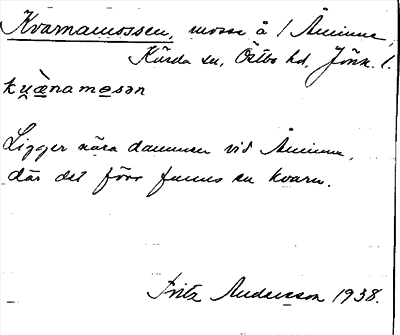 Kvarnamossen, mosse å 1 Åminne,
Kärda sn, Östbo hd, Jönk. l.
ku̯ænamesən
Ligger nära dammen vid Åminne,
där det förr funns en kvarn.
Fritz Andersson 1938.